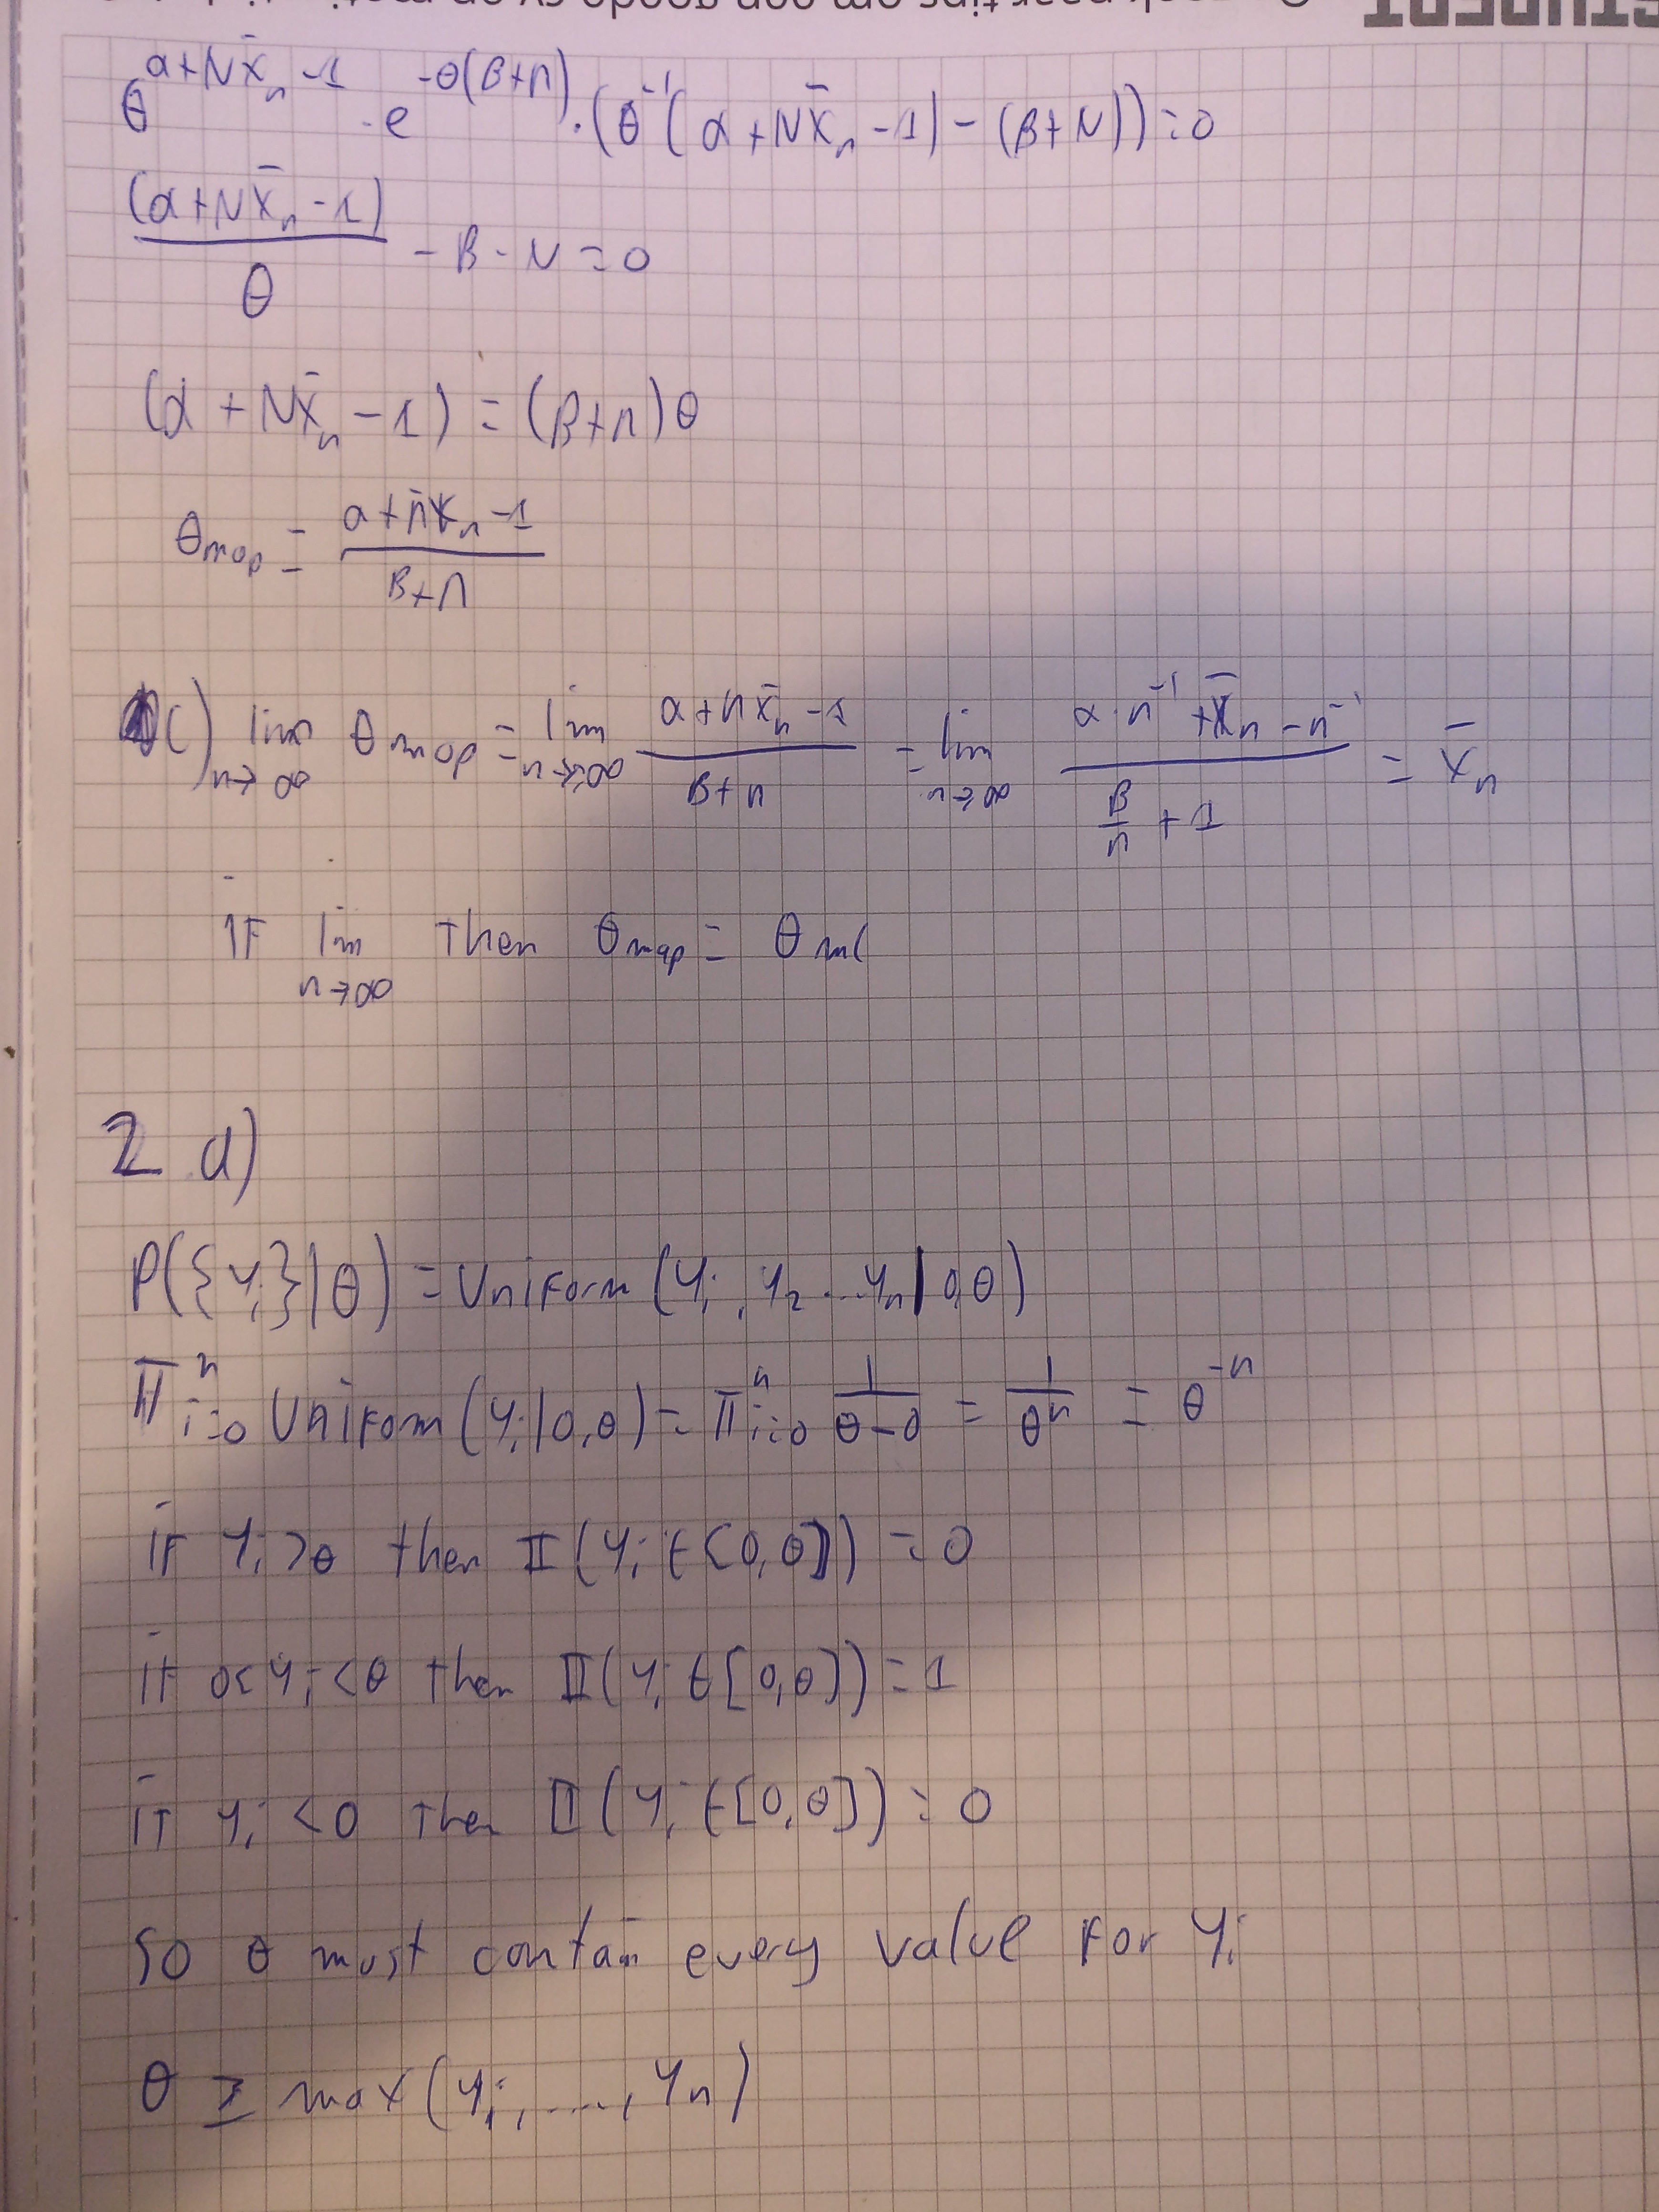 θ^{α+Nx̄_n-1} · e^{-θ(β+n)} · (θ^{-1}(α+Nx̄_n-1)-(β+N))=0
(α+Nx̄_n-1)/θ - β - N = 0
(α+Nx̄_n-1) = (β+n)θ
θ_map = (α+nx̄_n-1)/(β+n)
c) lim_{n→∞} θ_map = lim_{n→∞} (α+nx̄_n-1)/(β+n) = lim_{n→∞} (α·n^{-1}+x̄_n-n^{-1})/(β/n+1) = x̄_n
if lim_{n→∞} then θ_map = θ_ml
2 a)
P({y_i}|θ) = Uniform(y_i, y_2 ... y_n | 0,θ)
Π_{i=0}^n Uniform(y_i|0,θ) = Π_{i=0}^n 1/(θ-0) = 1/θ^n = θ^{-n}
if y_i > θ then 𝕀(y_i ∈ [0,θ]) = 0
if 0< y_i < θ then 𝕀(y_i ∈ [0,θ]) = 1
if y_i < 0 then 𝕀(y_i ∈ [0,θ]) = 0
So θ must contain every value for y_i
θ ≥ max(y_i, ...., y_n)